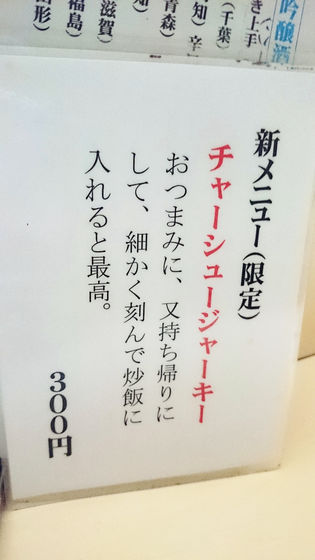 吟醸酒
き上手
(千葉)
知)
青森)
知)
滋賀)
福島)
形)
新メニュー(限定)
チャーシュージャーキー
おつまみに、又持ち帰りに
して、細かく刻んで炒飯に
入れると最高。
300円